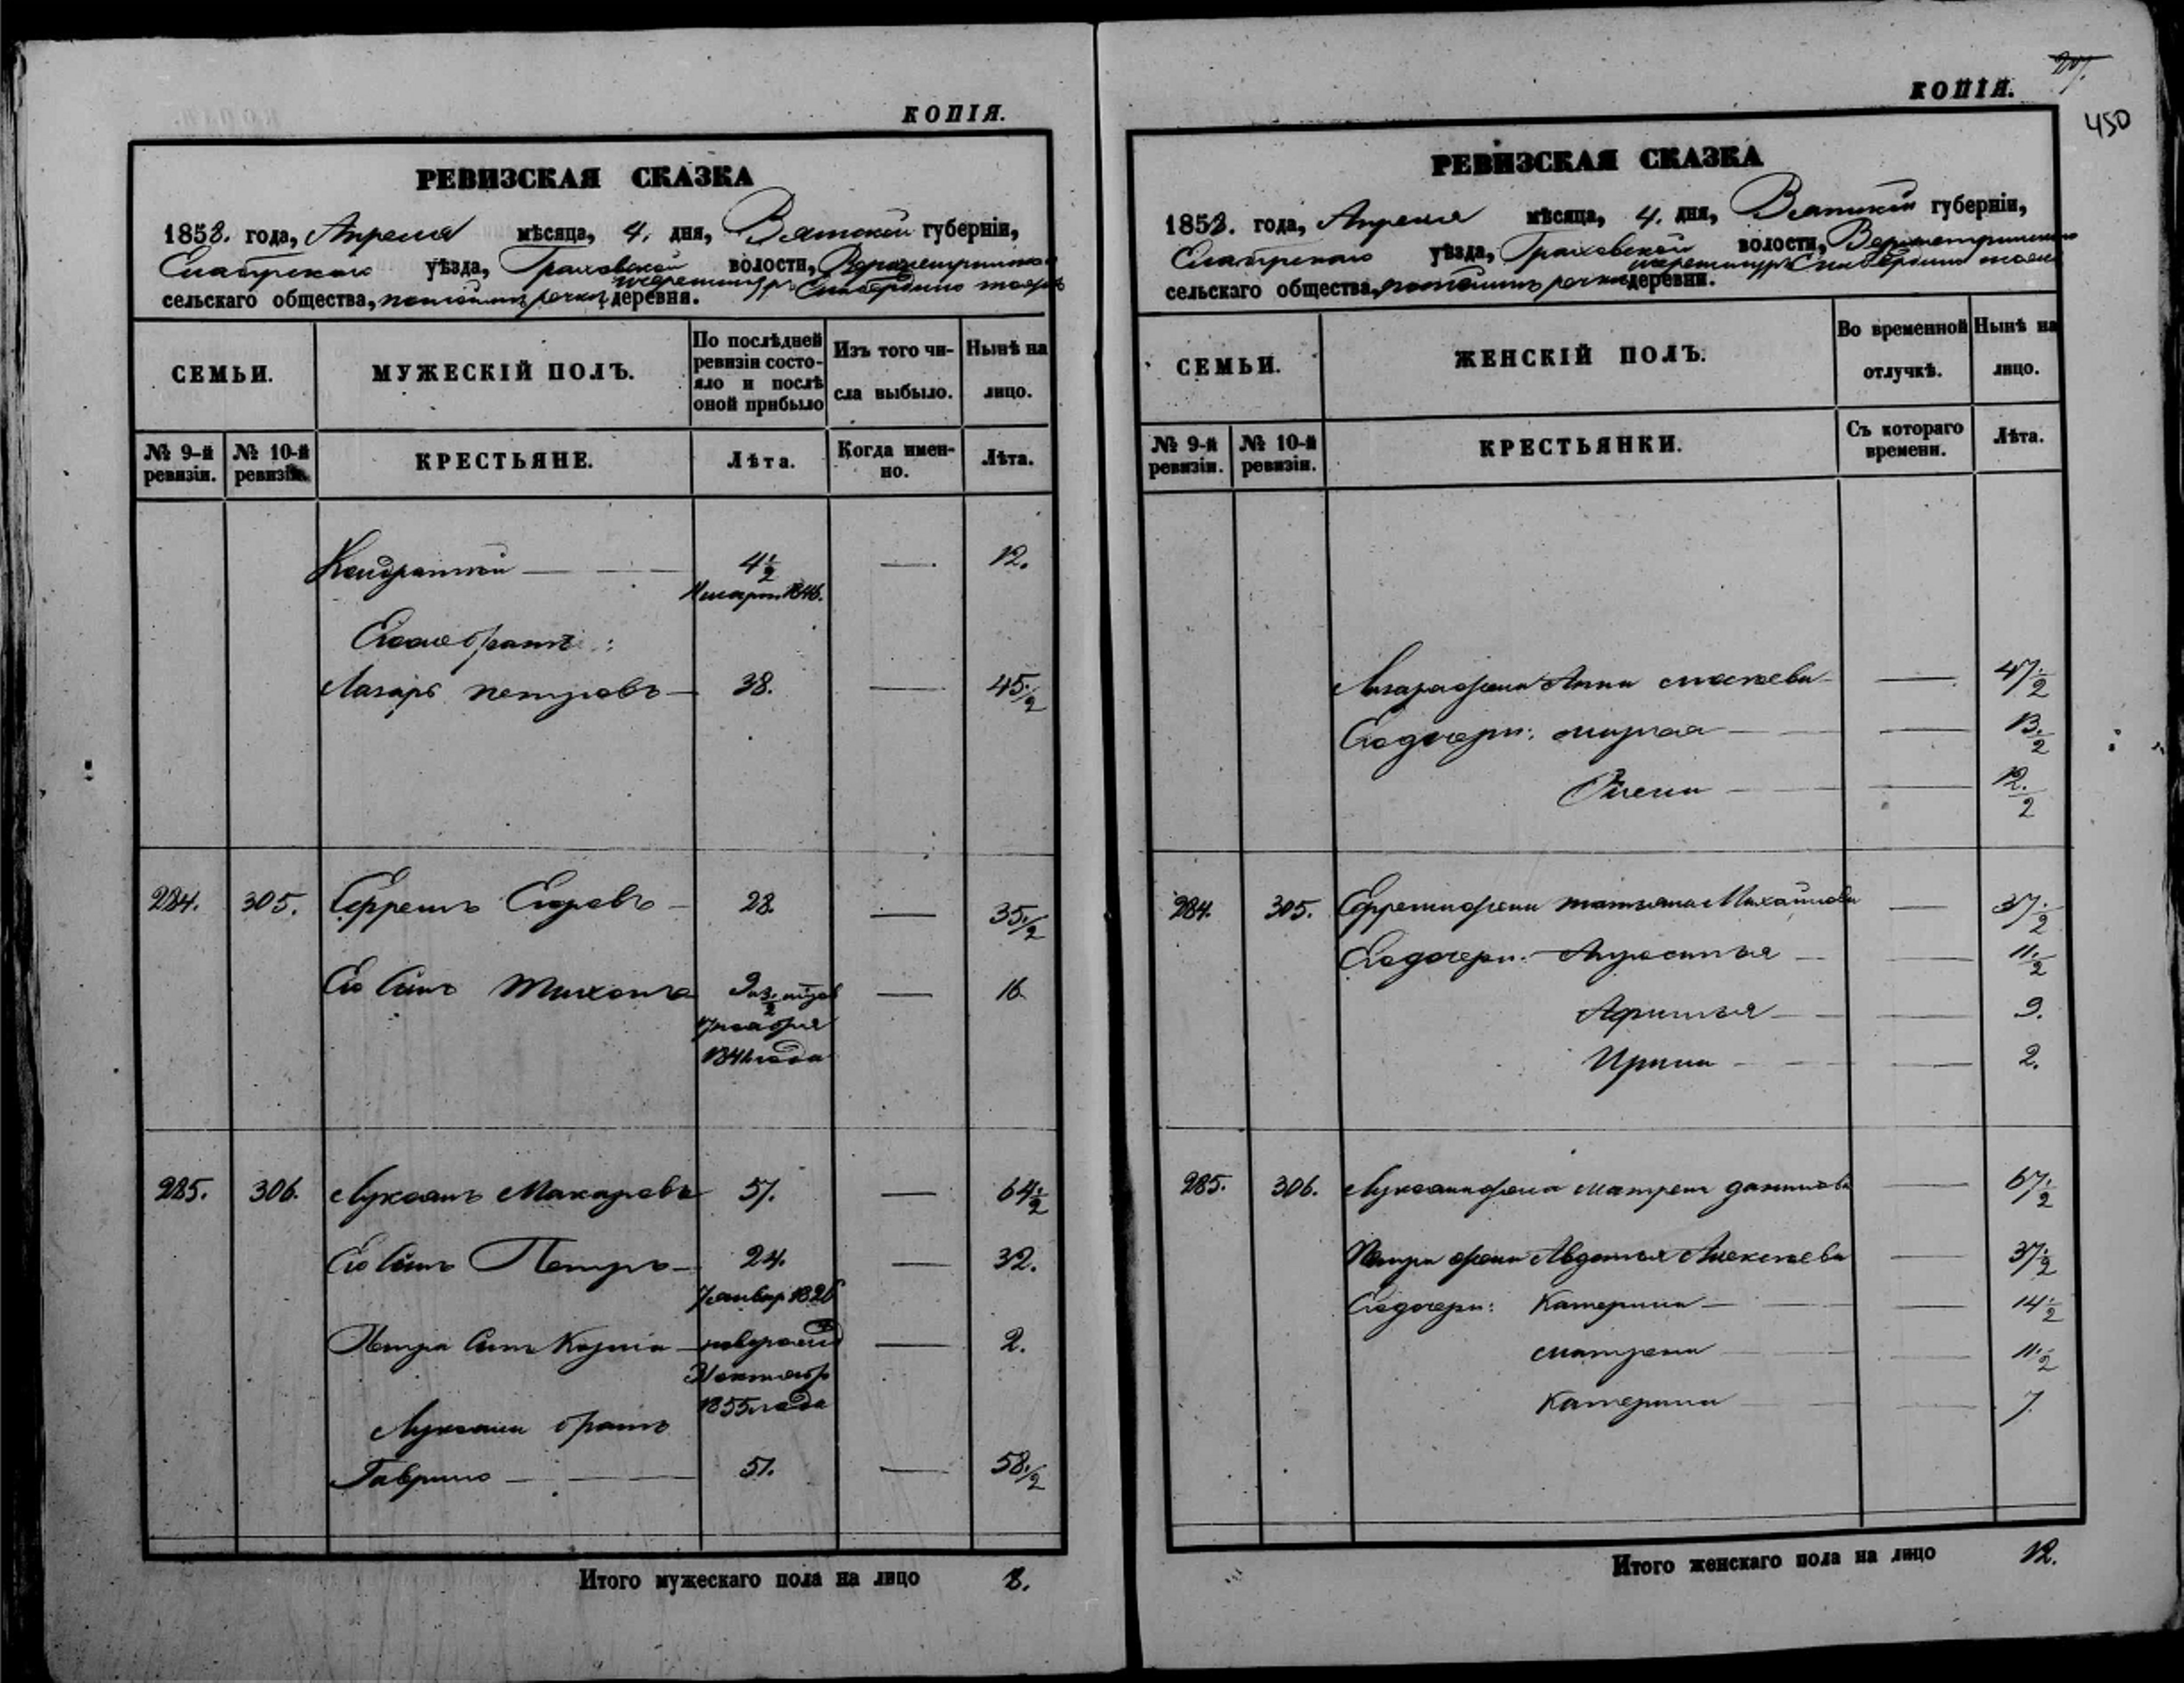 КОПІЯ.
РЕВИЗСКАЯ СКАЗКА
1858. года, Апреля мѣсяца, 4. дня, Вятской губерніи,
Елабужскаго уѣзда, Граховской волости,
сельскаго общества, деревня.
СЕМЬИ.
МУЖЕСКІЙ ПОЛЪ.
По послѣдней ревизіи состояло и послѣ оной прибыло
Изъ того числа выбыло.
Нынѣ на лицо.
№ 9-й ревизіи.
№ 10-й ревизіи.
КРЕСТЬЯНЕ.
Лѣта.
Когда именно.
Лѣта.
Кондратий — 4½ — 12.
1846.
Его же братъ:
Лазарь Петровъ — 38. — 45½
284. 305. Ефремъ Егоровъ — 28. — 35½
Его Сынъ Тихонъ — 16
ноября
1841 года
285. 306. Лукоянъ Макаровъ 57. — 64½
Его Сынъ Петръ — 24. — 32.
январ 1826
Петра Сынъ Козма — — 2.
октябр
1855 года
Лукояна братъ
Гаврило — 51. — 58½
Итого мужескаго пола на лицо 8.
207.
КОПІЯ.
450
РЕВИЗСКАЯ СКАЗКА
1858. года, Апреля мѣсяца, 4. дня, Вятской губерніи,
Елабужскаго уѣзда, Граховской волости,
сельскаго общества, деревни.
СЕМЬИ.
ЖЕНСКІЙ ПОЛЪ.
Во временной отлучкѣ.
Нынѣ на лицо.
№ 9-й ревизіи.
№ 10-й ревизіи.
КРЕСТЬЯНКИ.
Съ котораго времени.
Лѣта.
Лазаря жена Анна — 47½
Его дочери: — 13½
Олена — 12½
284. 305. Ефрема жена Татьяна Михайлова — 37½
Его дочери: — 11½
Афимья — 9.
Ирина — 2.
285. 306. Лукояна жена Матрена Данилова — 67½
Петра жена Авдотья Алексѣева — 37½
Его дочери: Катерина — 14½
Матрена — 11½
Катерина — 7.
Итого женскаго пола на лицо 12.